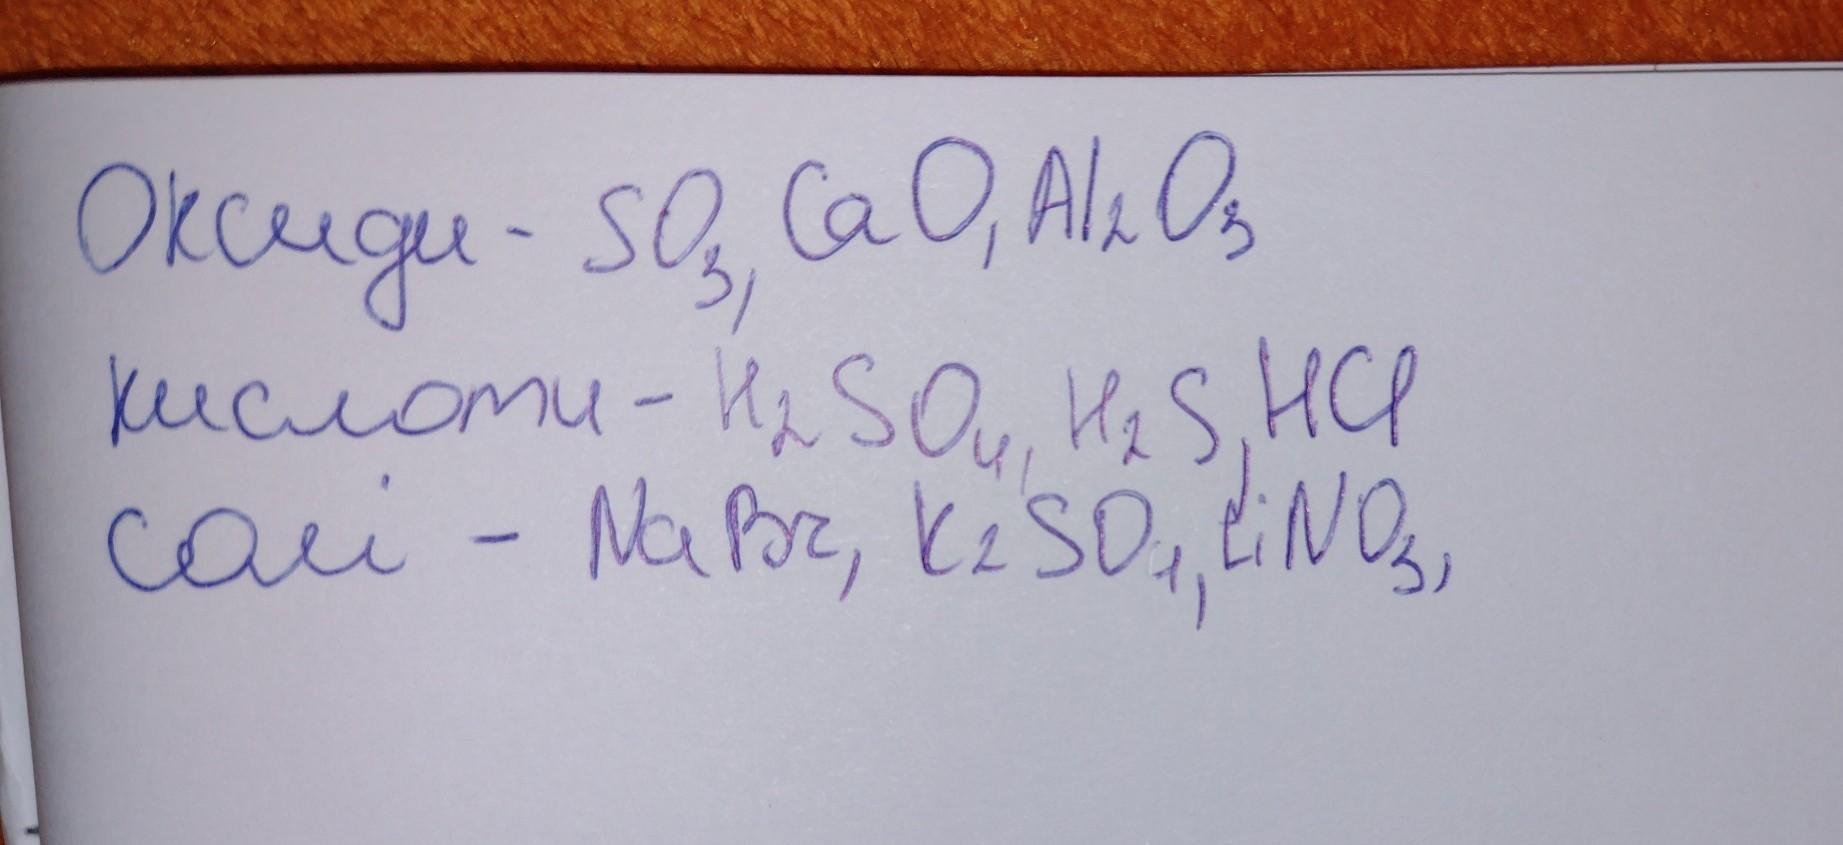 Оксиди - SO₃, CaO, Al₂O₃
кислоти - H₂SO₄, H₂S, HCl
солі - NaBr, K₂SO₄, LiNO₃,